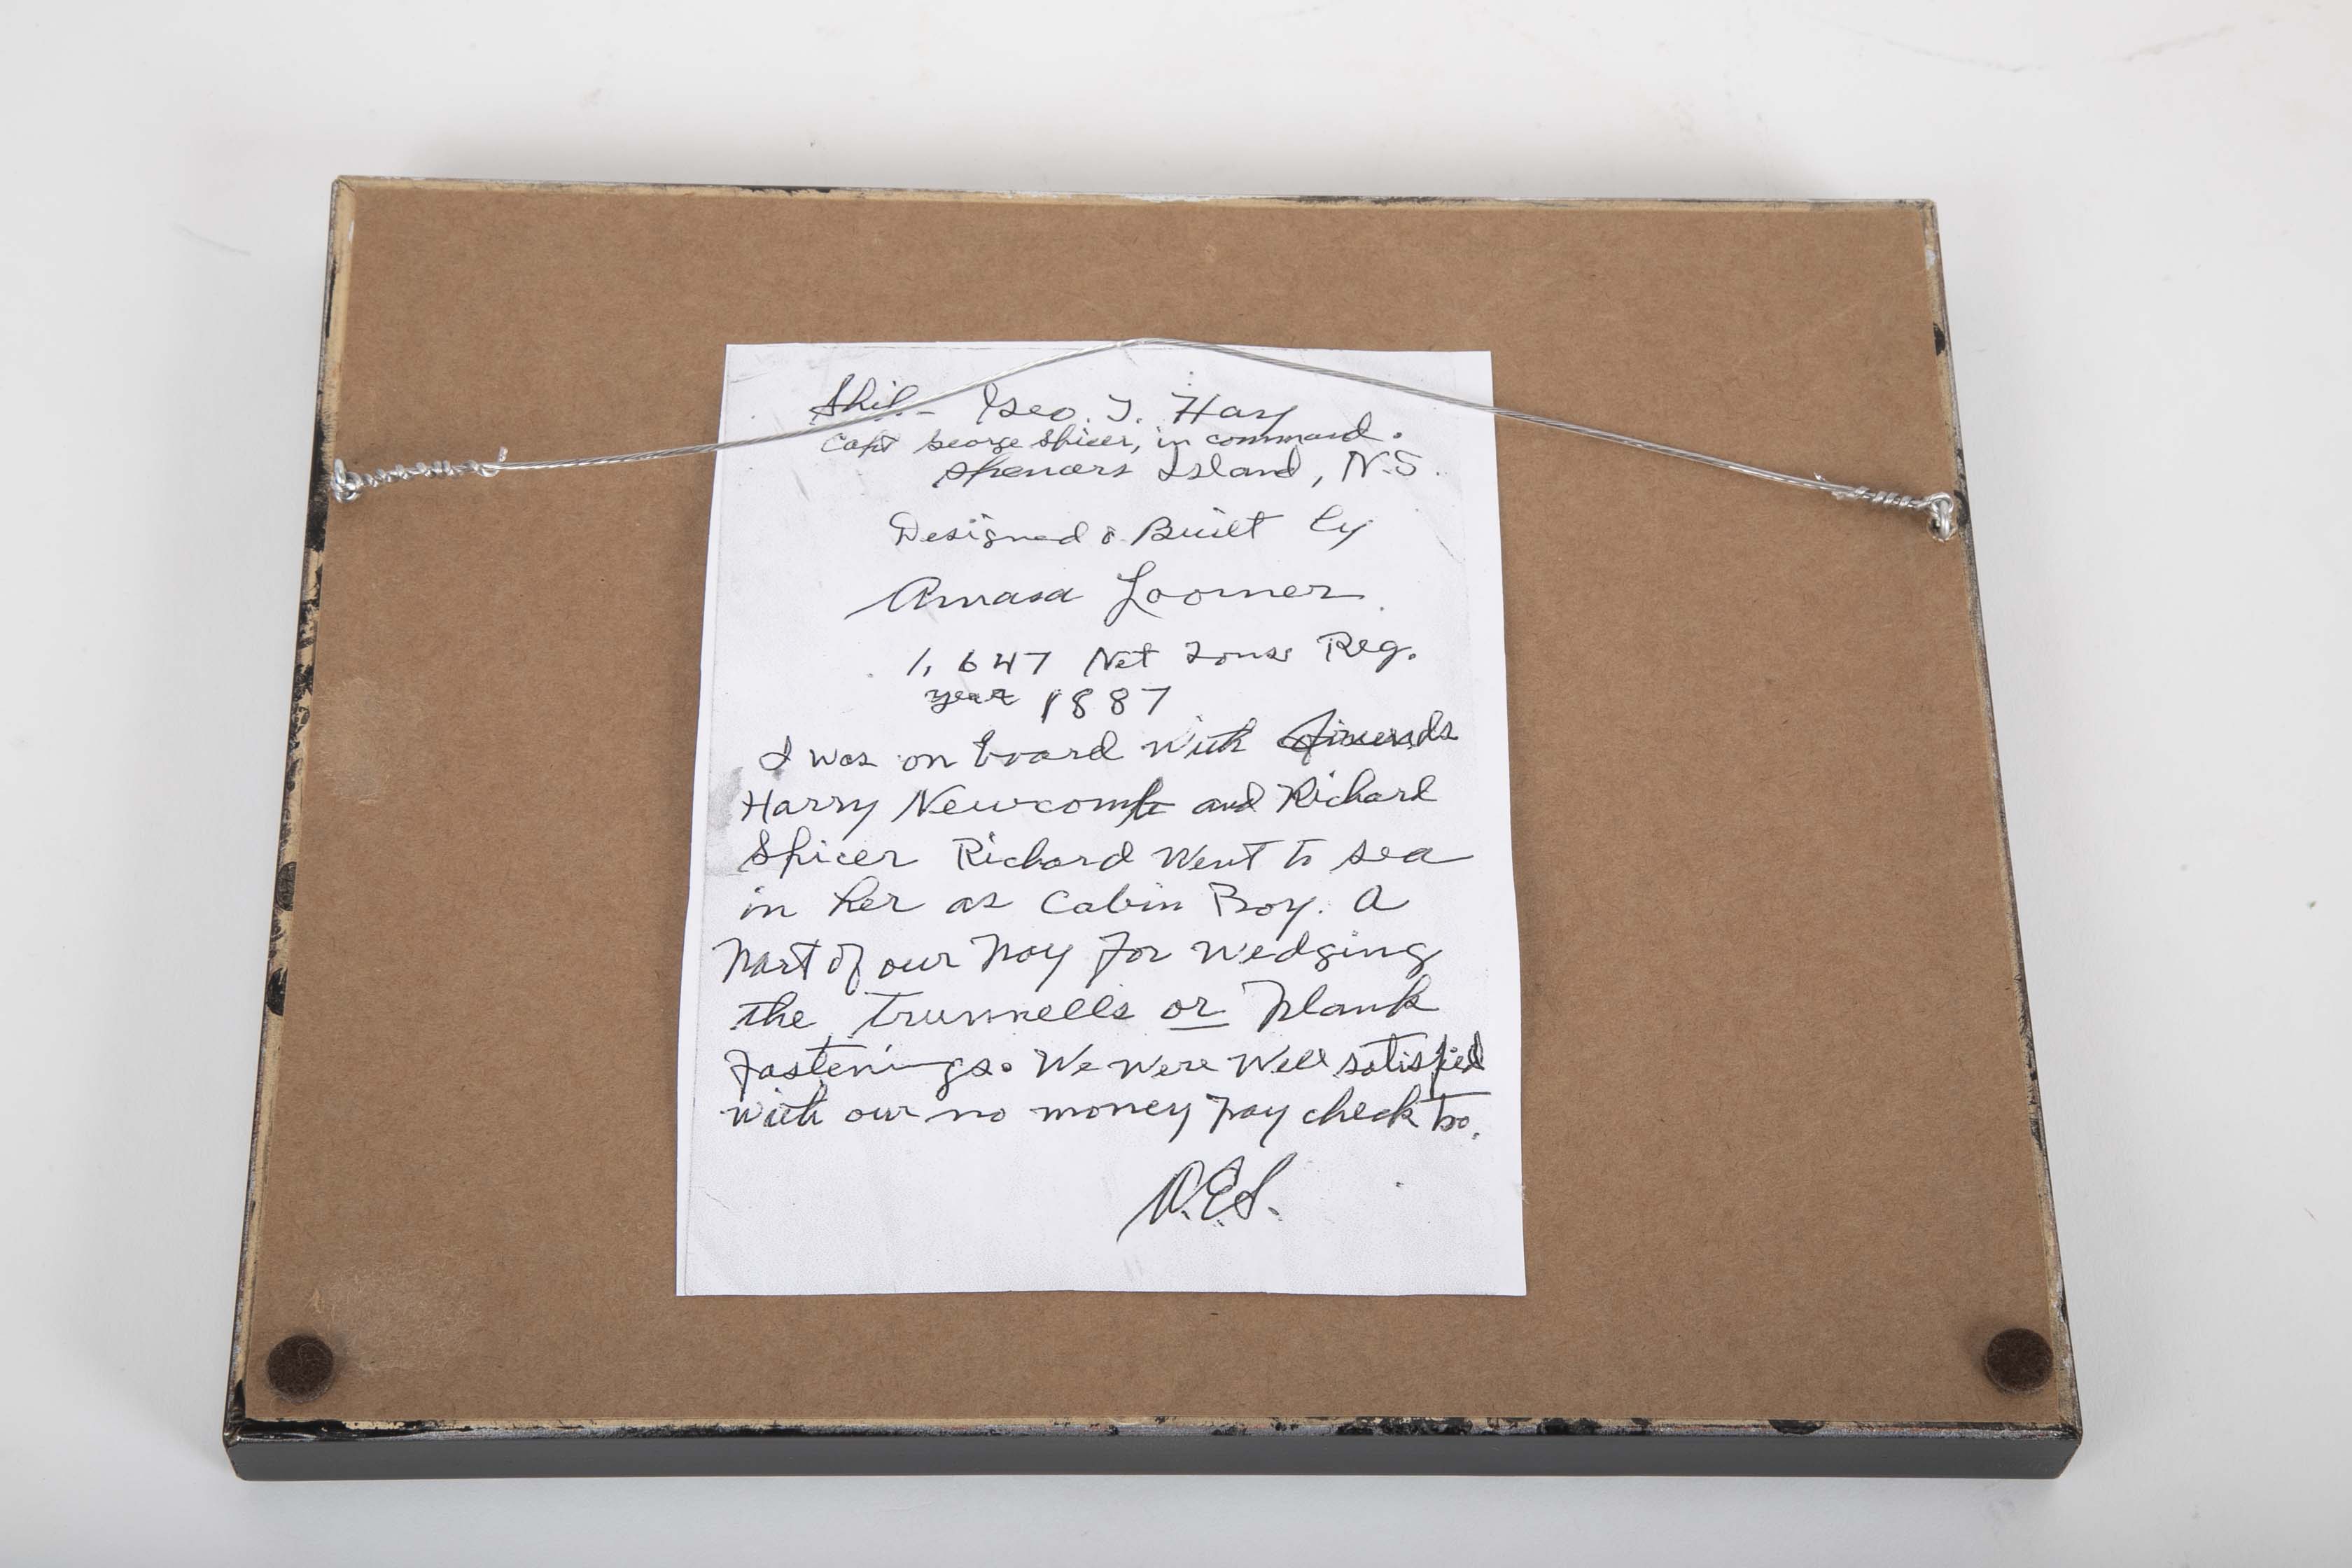 Ship - Geo. T. Hay
Capt George Spicer, in command.
Spencers Island, N.S.
Designed & Built by
Amasa Loomer
1,647 Net Tons Reg.
year 1887
I was on board with friends
Harry Newcomb and Richard
Spicer Richard Went to sea
in her as Cabin Boy. A
Part of our Pay for Wedging
the Trunnells or Plank
fastenings. We were Well satisfied
with our no money Pay check too.